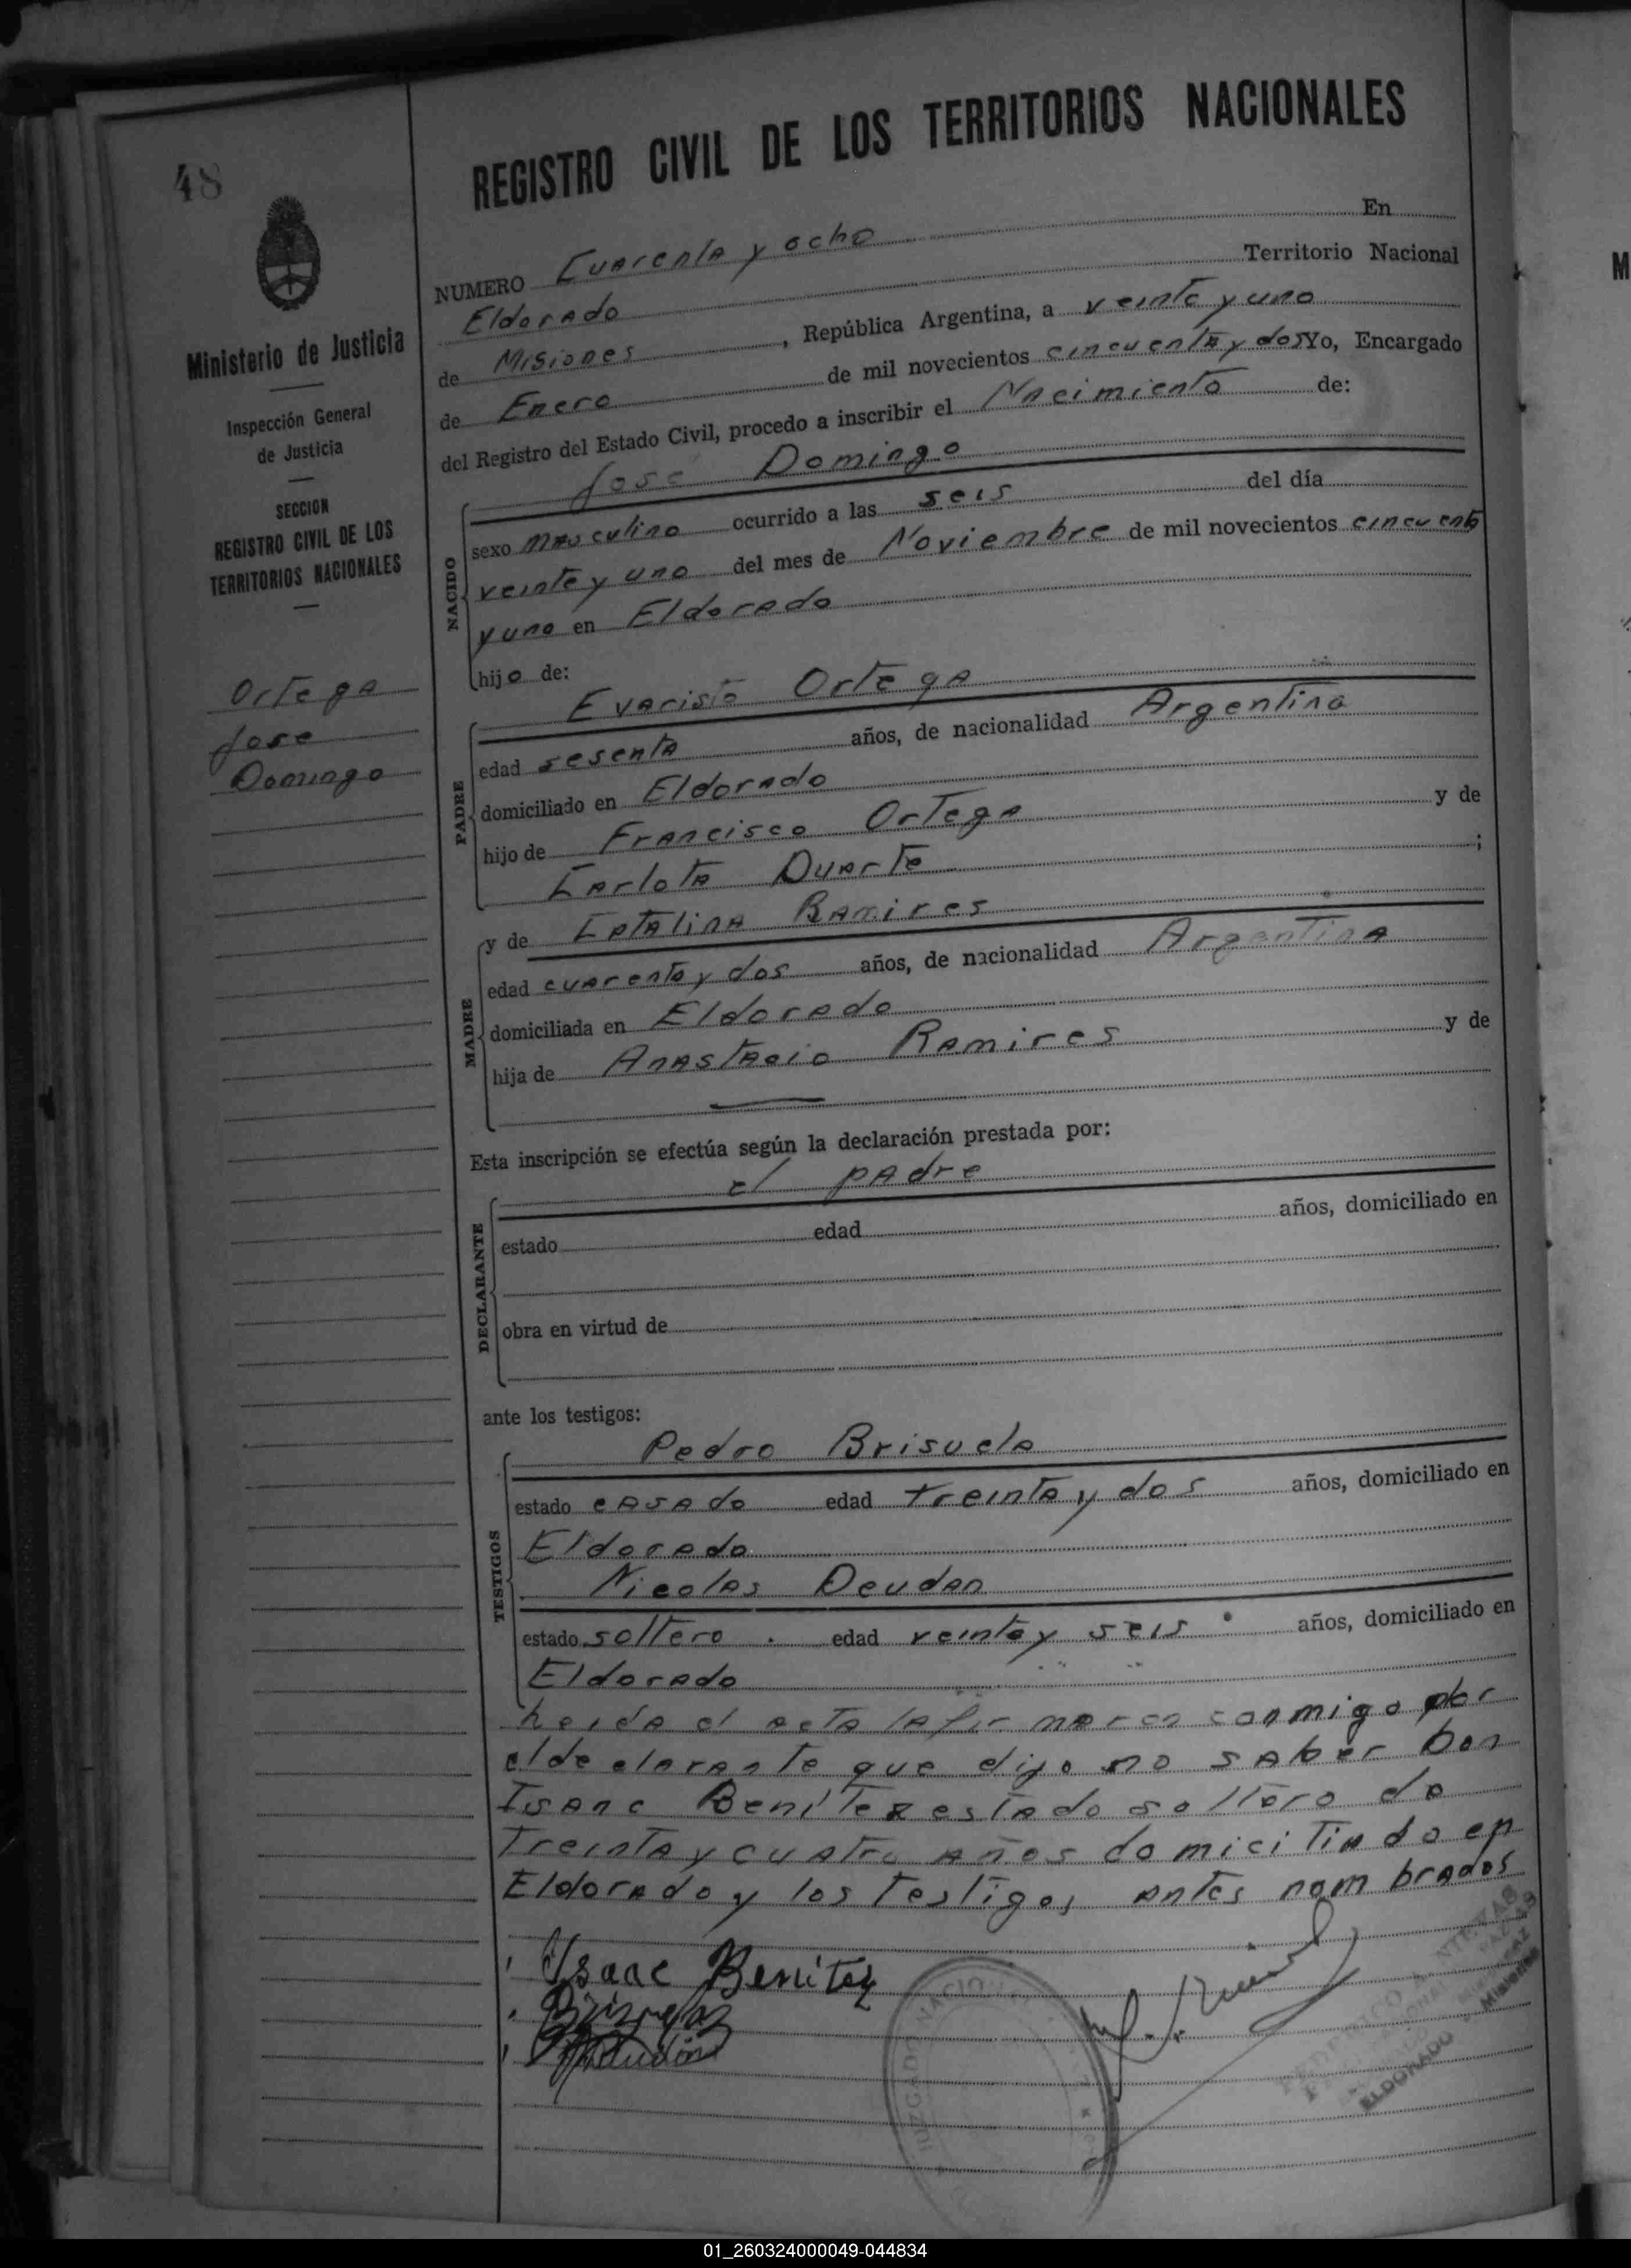 REGISTRO CIVIL DE LOS TERRITORIOS NACIONALES
48
Ministerio de Justicia
Inspección General
de Justicia
SECCION
REGISTRO CIVIL DE LOS
TERRITORIOS NACIONALES
Ortega
Jose
Domingo
NUMERO Cuarenta y ocho En
Eldorado Territorio Nacional
de Misiones, República Argentina, a veinte y uno
de Enero de mil novecientos cincuenta y dos Yo, Encargado
del Registro del Estado Civil, procedo a inscribir el Nacimiento de:
Jose Domingo
NACIDO
sexo masculino ocurrido a las seis del día
veinte y uno del mes de Noviembre de mil novecientos cincuenta
y uno en Eldorado
hijo de:
Evaristo Ortega
PADRE
edad sesenta años, de nacionalidad Argentina
domiciliado en Eldorado
hijo de Francisco Ortega y de
Carlota Duarte ;
MADRE
y de Catalina Ramires
edad cuarenta y dos años, de nacionalidad Argentina
domiciliada en Eldorado
hija de Anastacio Ramires y de
Esta inscripción se efectúa según la declaración prestada por:
el padre
DECLARANTE
estado edad años, domiciliado en
obra en virtud de
ante los testigos:
TESTIGOS
Pedro Brisuela
estado casado edad treinta y dos años, domiciliado en
Eldorado
Nicolas Deudan
estado soltero. edad veinte y seis años, domiciliado en
Eldorado
Leida el acta la firmaron conmigo por
el declarante que dijo no saber Don
Isaac Benitez estado soltero de
treinta y cuatro años domiciliado en
Eldorado y los testigos antes nombrados
Isaac Benitez
JUZGADO NACIO
ELDORADO Misiones
M
01_260324000049-044834